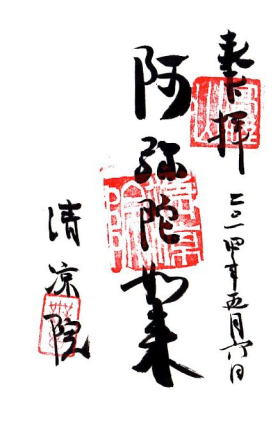 奉拝
二〇一四年五月六日
阿弥陀如来
清凉院